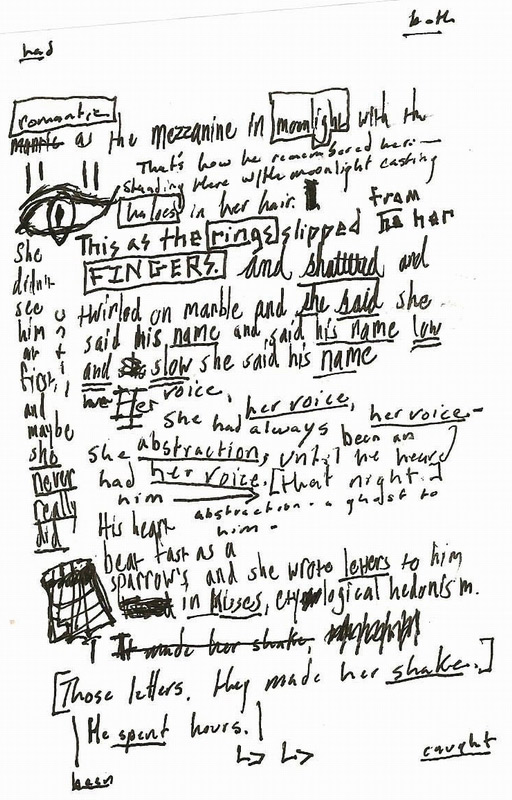 both
had
romantic
as the mezzanine in moonlight with the
That's how he remembered her:—
standing there with moonlight casting
haloes in her hair.
This as the rings slipped from her
FINGERS. and shattered and
twirled on marble and she said she
said his name and said his name low
and slow she said his name
She
didn't
see
him
at
first,
and
maybe
she
never
really
did
Her voice, her voice, her voice—
She had always been an
abstraction, until he heard
she had her voice. [that night.]
him
abstraction - a ghost to
him -
His heart
beat fast as a
sparrow's and she wrote letters to him
in kisses, etymological hedonism.
It made her shake,
[Those letters. They made her shake.]
He spent hours.
been
caught